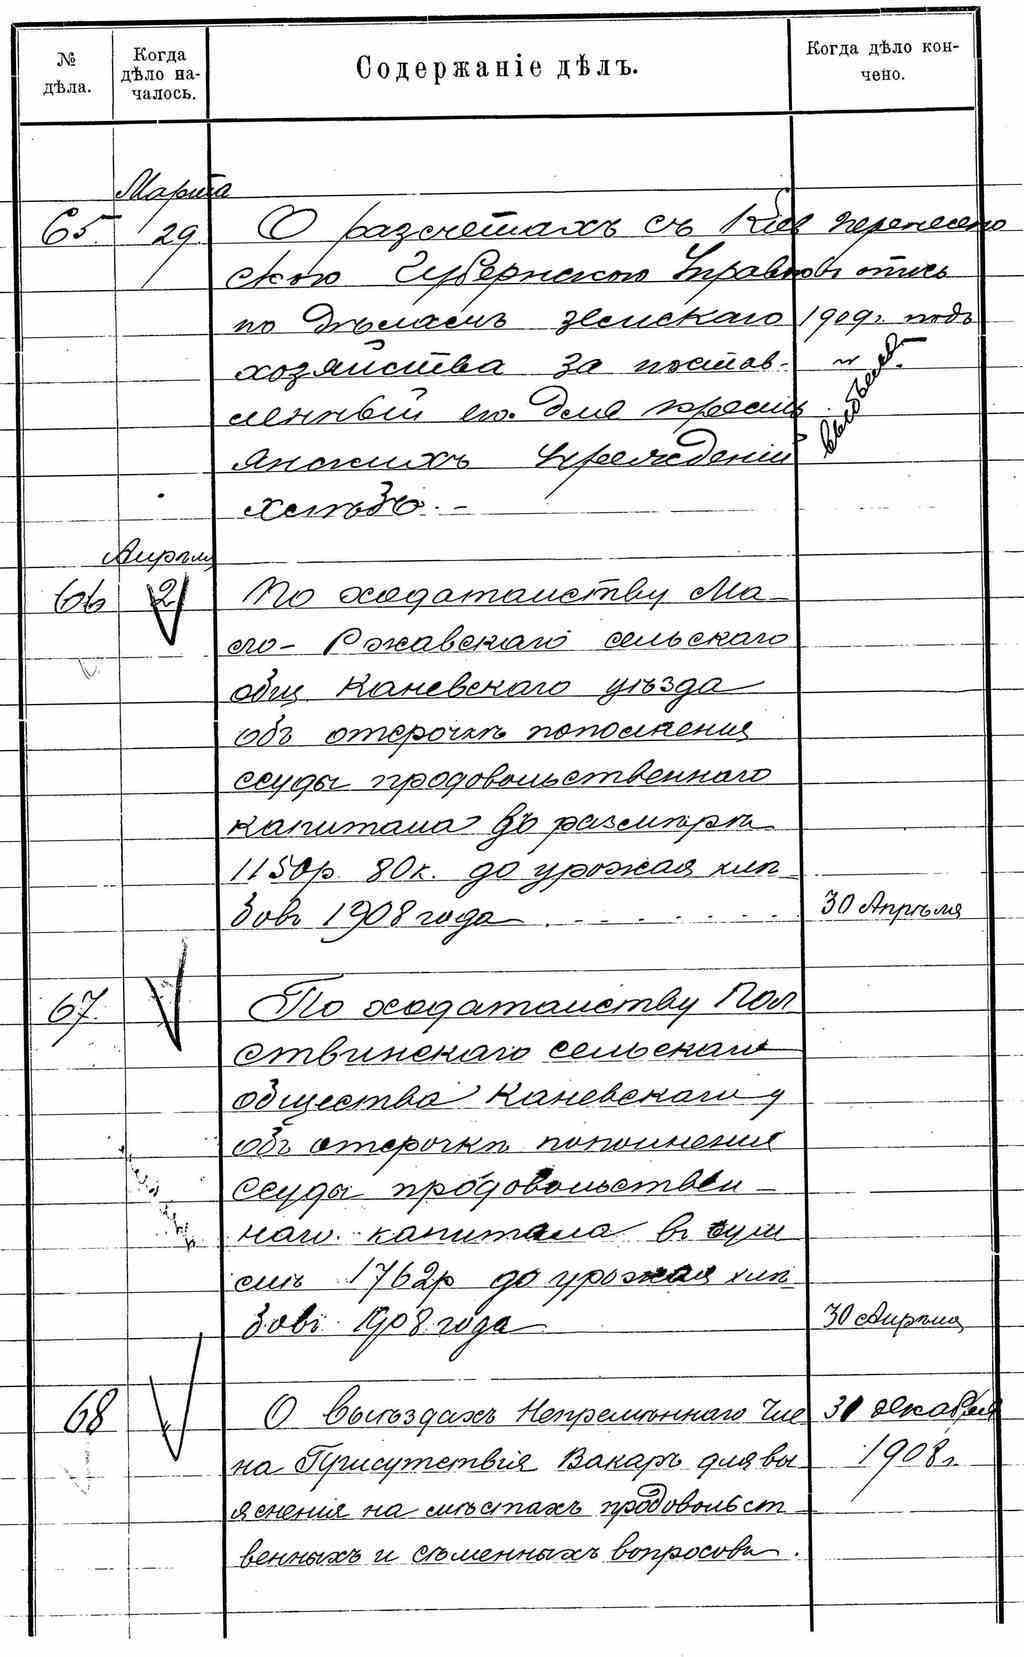 № дѣла.
Когда дѣло на-
чалось.
Содержаніе дѣлъ.
Когда дѣло кон-
чено.
Марта
65. 29 О разсчетахъ съ Кіев
скою Губернскою Управою
по Дѣламъ земскаго
хозяйства за постав-
ленный ею для крестьь
янскихъ учрежденій
хлѣбъ. -
перенесено
въ опись
1909 г. подъ
№
Апрѣля
66 2 По ходатайству Ма-
ло-Ржавскаго сельскаго
общ. Каневскаго уѣзда
объ отсрочкѣ пополненія
ссуды продовольственнаго
капитала въ размѣрѣ
1150р. 80к. до урожая хлѣ
бовъ 1908 года 30 Апрѣля
67. По ходатайству Пол
ствинскаго сельскаго
общества Каневскаго у
объ отсрочкѣ пополненія
ссуды продовольствен-
наго капитала въ сум
мѣ 1762р до урожая хлѣ
бовъ 1908 года 30 Апрѣля
68 О выѣздахъ Непремѣннаго Чле 31 декабря
на Присутствія Вакаръ для вы 1908 г.
ясненія на мѣстахъ продовольст
венныхъ и сѣменныхъ вопросовъ.